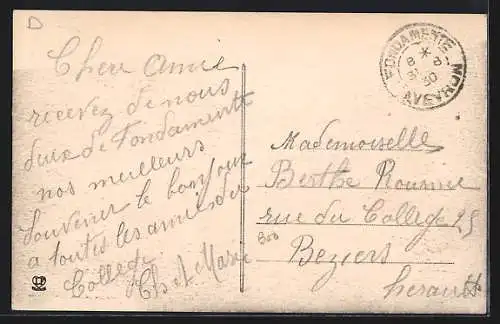 D
Chere Amie
recevez de nous
deux de Fondamente
nos meilleurs
Souvenir le bonjour
a toutes les amies du
College
et Marie
FONDAMENTE
AVEYRON
8 *
30
Mademoiselle
Berthe Roumie
rue du College 25
Beziers
herault